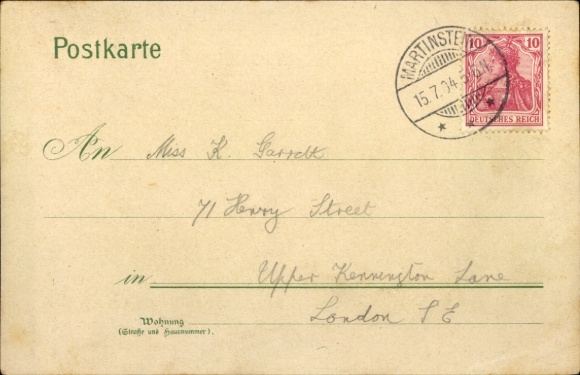 Postkarte
MARTINSTEIN
15.7.04
10 10
DEUTSCHES REICH
An Miss K. Garrett
71 Henry Street
in Upper Kennington Lane
London S E
Wohnung
(Straße und Hausnummer).